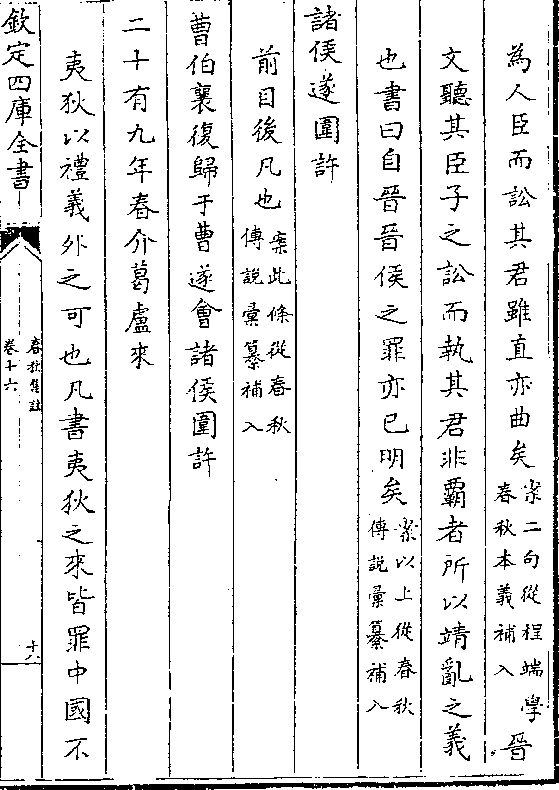 為人臣而訟其君雖直亦曲矣案二句從程端學春秋本義補入晉
文聽其臣子之訟而執其君非霸者所以靖亂之義
也書曰自晉晉侯之罪亦已明矣案以上從春秋傳説彙纂補入
諸侯遂圍許
前目後凡也案此條從春秋傳説彙纂補入
曹伯襄復歸于曹遂會諸侯圍許
二十有九年春介葛盧來
夷狄以禮義外之可也凡書夷狄之來皆罪中國不
欽定四庫全書
春秋集註
卷十六
十八